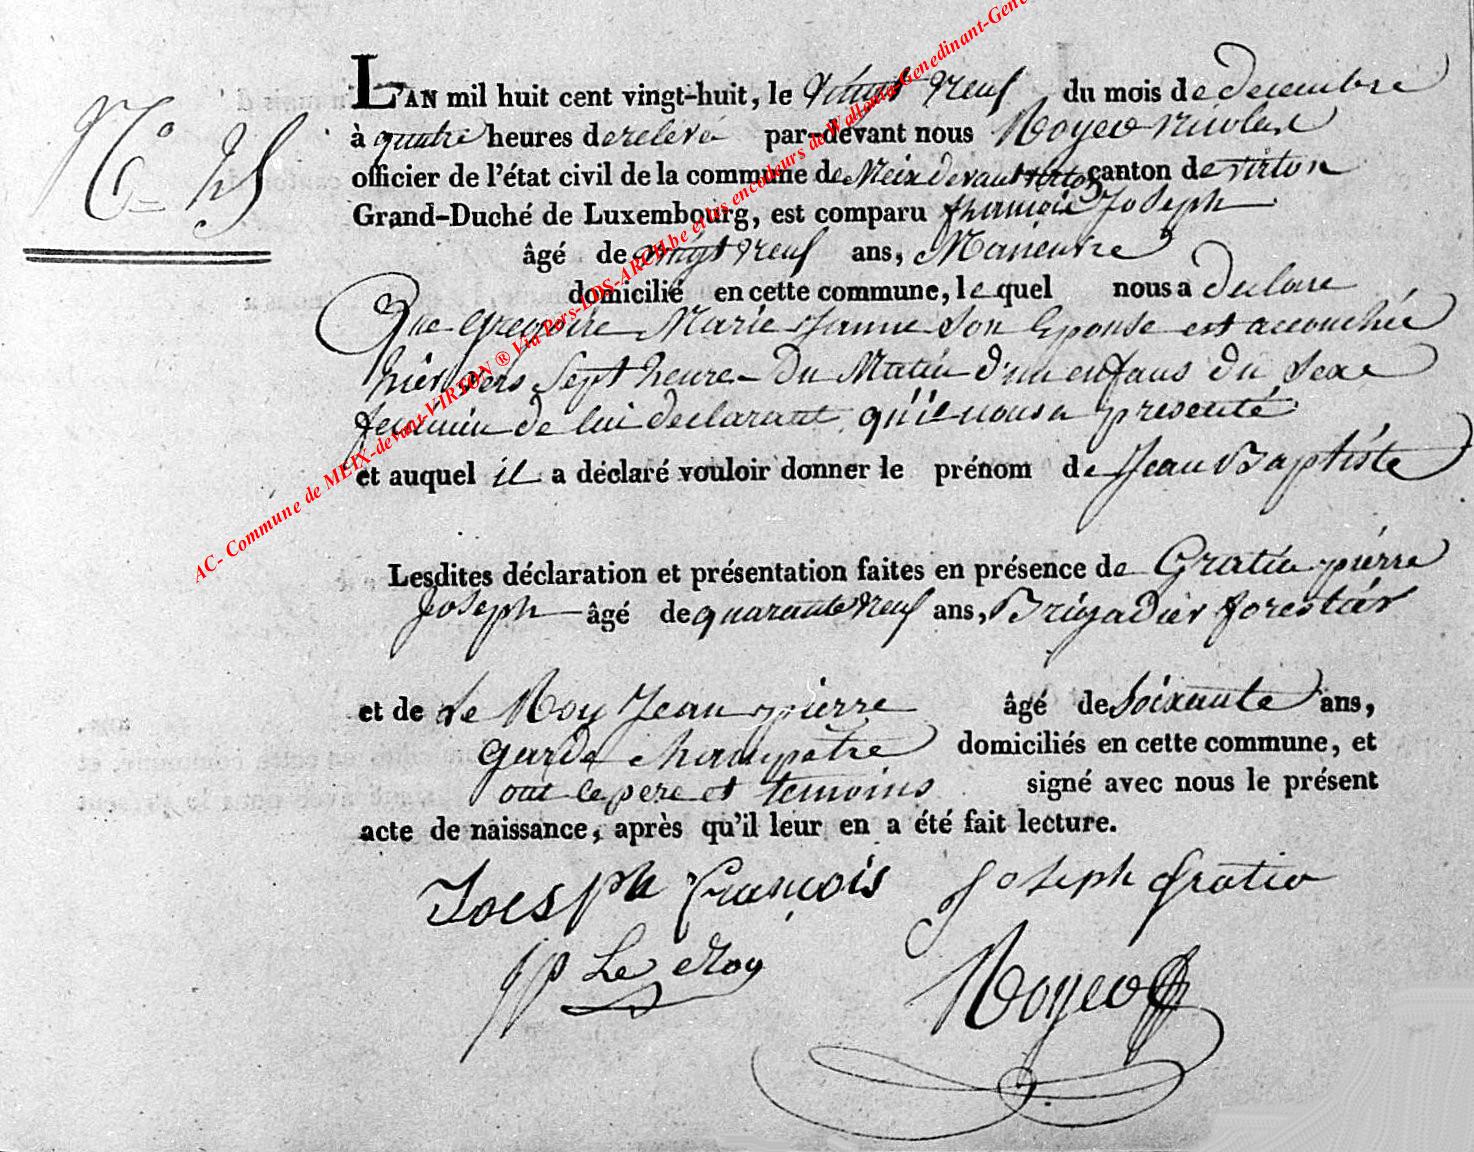 N° 25
L'AN mil huit cent vingt-huit, le Vingt Neuf du mois de decembre
à quatre heures de relevé par-devant nous Noyeo nicolas
officier de l'état civil de la commune de Meix devant virton canton de virton
Grand-Duché de Luxembourg, est comparu francois Joseph
âgé de vingt neuf ans, Maneuvre
domicilié en cette commune, le quel nous a declaré
Que Gregoire Marie Jeanne son Epouse est accouchée
hier vers Sept heure du Matin d'un enfans du sexe
feminin de lui declarant, qu'il nous a presenté
et auquel il a déclaré vouloir donner le prénom de Jean Baptiste
Lesdites déclaration et présentation faites en présence de Gratia pierre
Joseph âgé de quarante neuf ans, Brigadier forestier
et de le Roy Jean pierre âgé de Soixante ans,
garde champetre domiciliés en cette commune, et
ont le pere et temoins signé avec nous le présent
acte de naissance, après qu'il leur en a été fait lecture.
Joesph francois Joseph Gratia
jp Le Roy
Noyeo
AC- Commune de MEIX-devant-VIRTON ® Via Pers-LDS-ARCH.be et les encodeurs de Wallonia-Genedinant-Gene